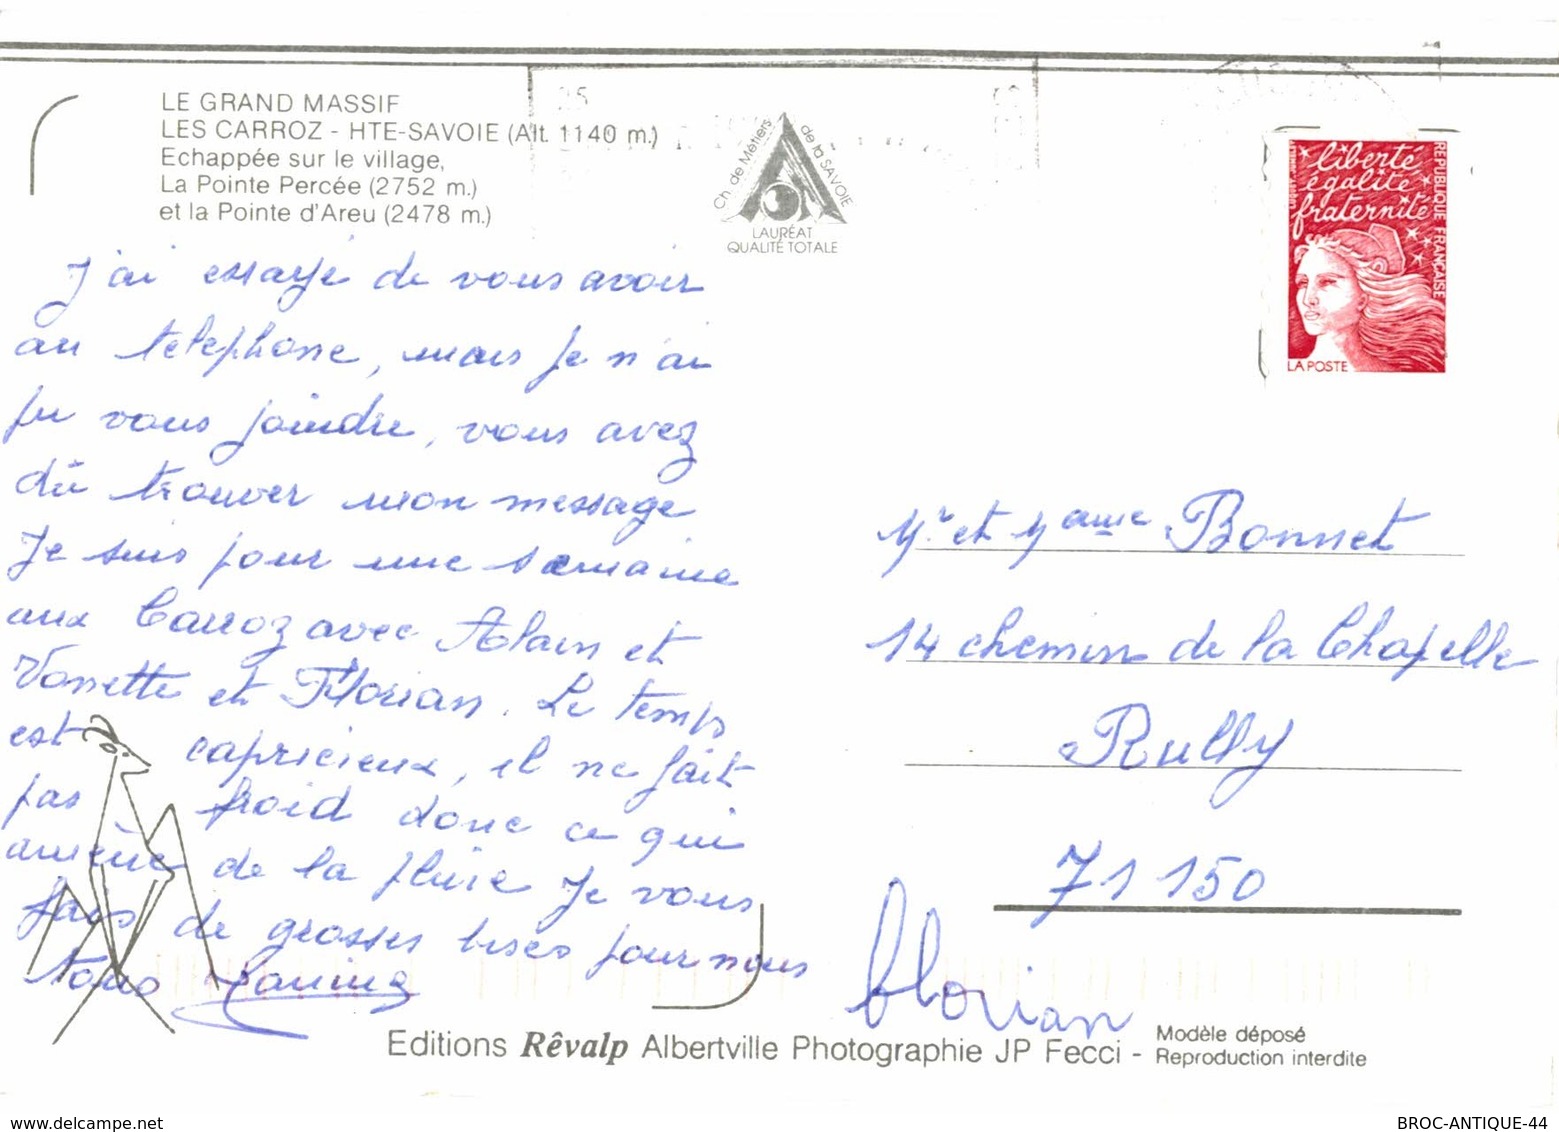 LE GRAND MASSIF
LES CARROZ - HTE-SAVOIE (Alt. 1140 m.)
Echappée sur le village,
La Pointe Percée (2752 m.)
et la Pointe d'Areu (2478 m.)
Ch. de Métiers de la SAVOIE
LAURÉAT
QUALITÉ TOTALE
liberté
égalité
fraternité
REPUBLIQUE FRANÇAISE
LA POSTE
J'ai essayé de vous avoir
au telephone, mais je n'ai
pu vous joindre, vous avez
dû trouver mon message
Je suis pour une semaine
aux Carroz avec Alain et
Vonette et Florian. Le temps
est capricieux, il ne fait
pas froid donc ce qui
amène de la pluie Je vous
fais de grosses bises pour nous
tous
Florian
Mr et Mame Bonnet
14 chemin de la Chapelle
Rully
71150
Editions Rêvalp Albertville Photographie JP Fecci - Modèle déposé
Reproduction interdite
BROC-ANTIQUE-44